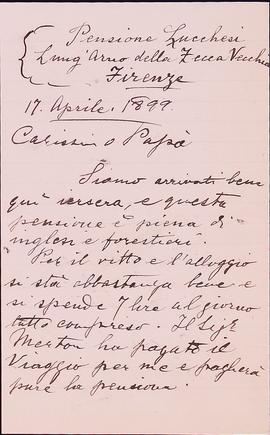 Pensione Lucchesi
Lung' Arno della Zecca Vecchia
Firenze
17. Aprile. 1899.
Carissimo Papà
Siamo arrivati bene
quì iersera, e questa
pensione è piena di
inglesi e forestieri.
Per il vitto e l'alloggio
si stà abbastanza bene e
si spende 7 lire al giorno
tutto compreso. Il Sigr
Merton ha pagato il
Viaggio per me e pagherà
pure la pensione.